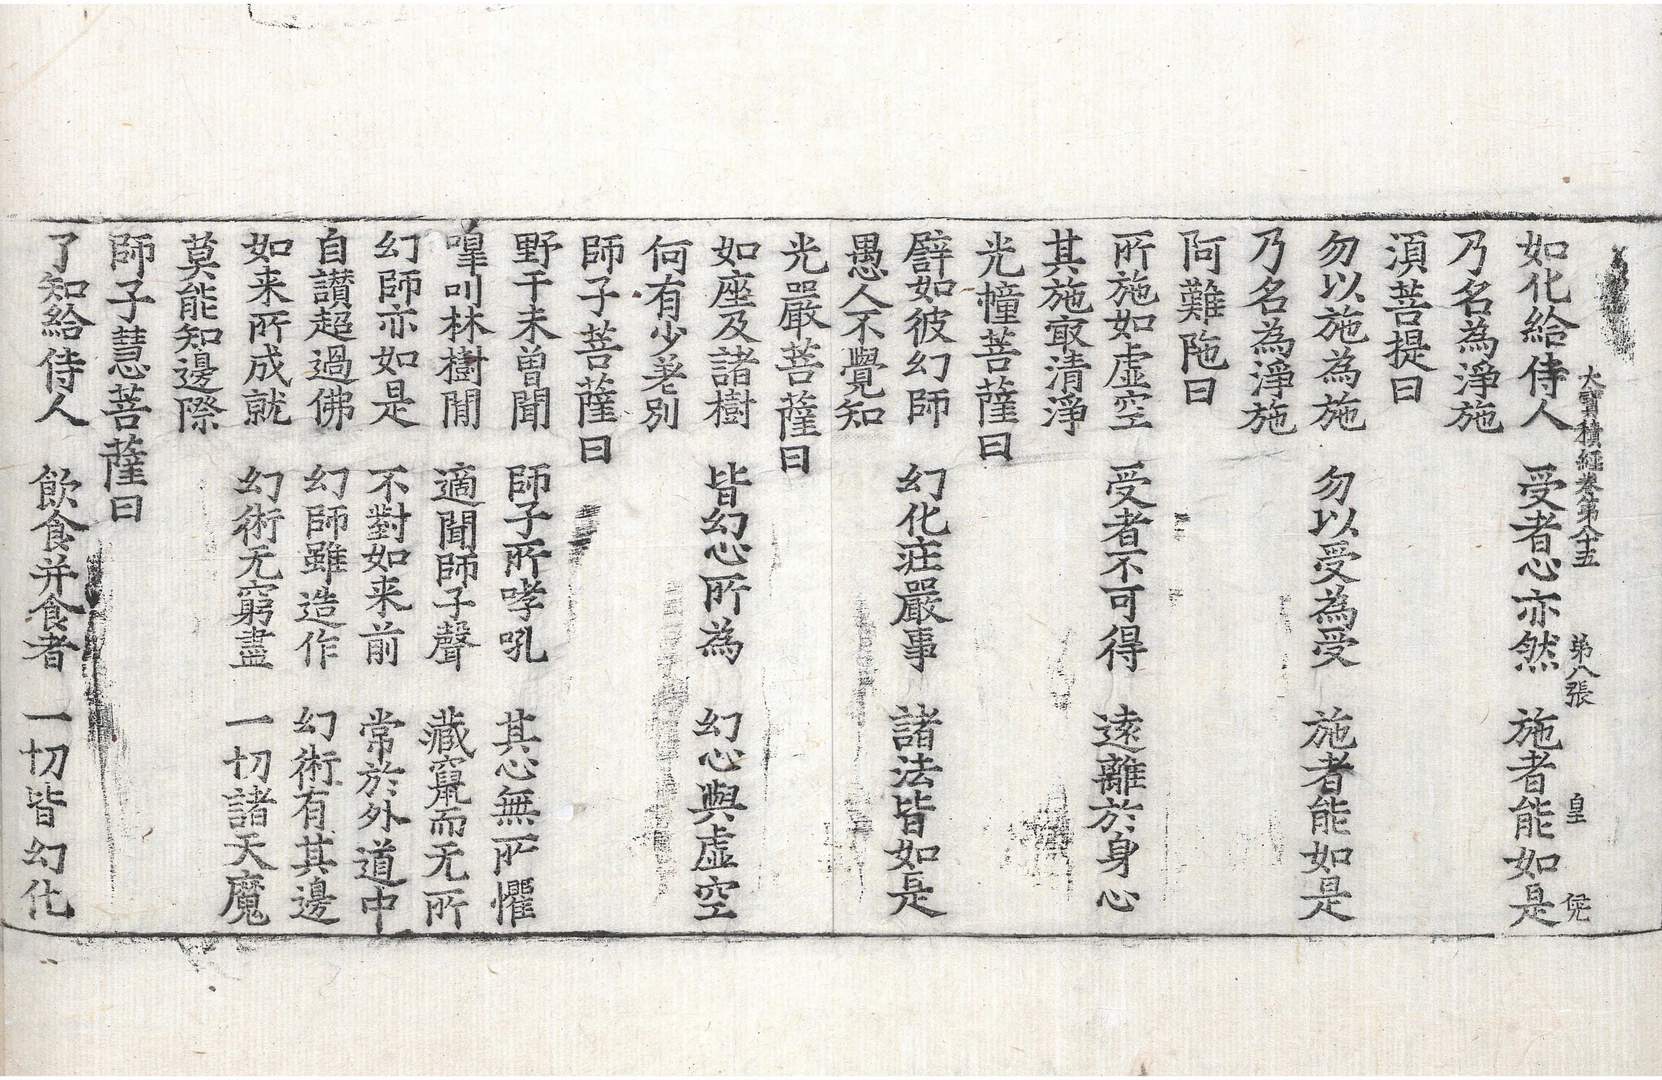 大寶積經卷第八十五 第八張 皇
如化給侍人 受者心亦然 施者能如是
乃名為淨施
須菩提曰
勿以施為施 勿以受為受 施者能如是
乃名為淨施
阿難陁曰
所施如虛空 受者不可得 遠離於身心
其施㝡清淨
光幢菩薩曰
譬如彼幻師 幻化莊嚴事 諸法皆如是
愚人不覺知
光嚴菩薩曰
如座及諸樹 皆幻心所為 幻心與虛空
何有少差別
師子菩薩曰
野干未曾聞 師子所哮吼 其心無所懼
嘷叫林樹閒 適聞師子聲 藏竄而无所
幻師亦如是 不對如来前 常於外道中
自讃超過佛 幻師雖造作 幻術有其邊
如来所成就 幻術无窮盡 一切諸天魔
莫能知邊際
師子慧菩薩曰
了知給侍人 飲食并食者 一切皆幻化